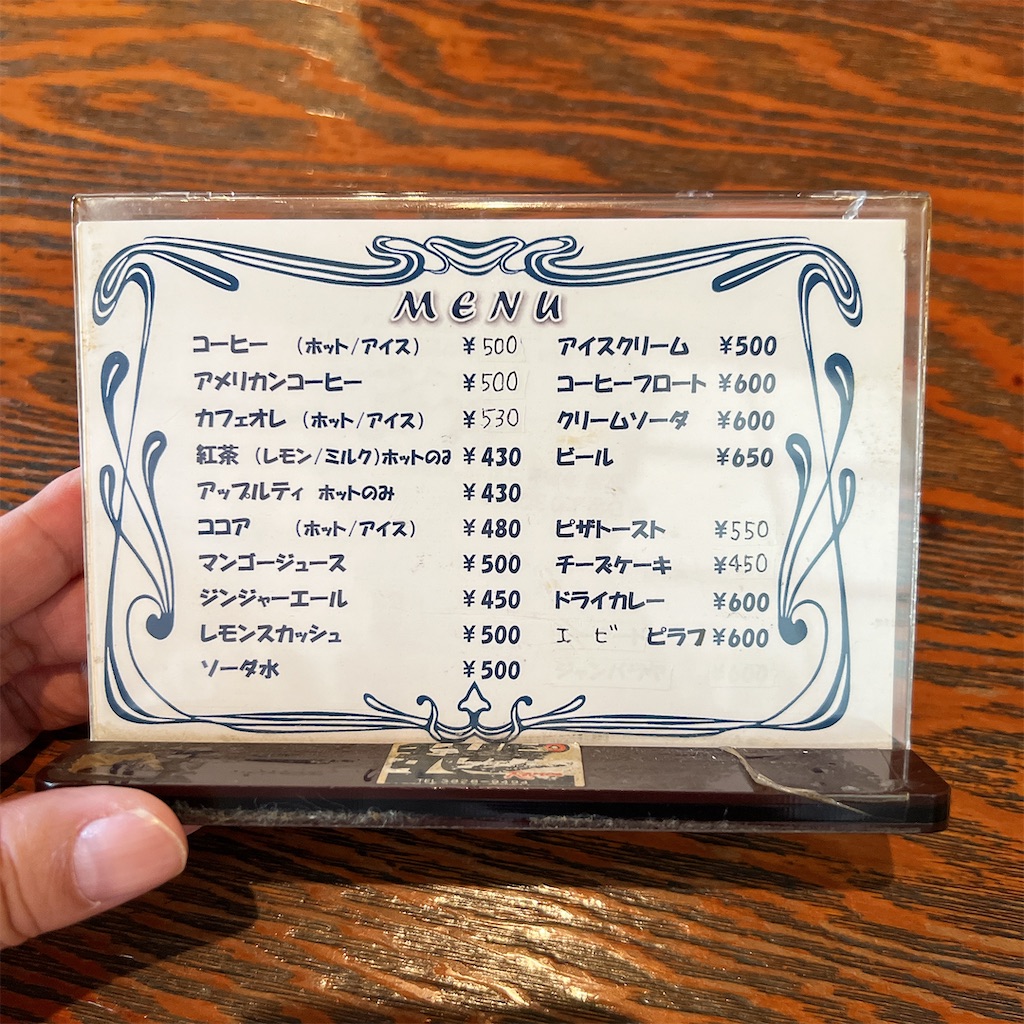 MENU
コーヒー (ホット/アイス) ¥500
アメリカンコーヒー ¥500
カフェオレ (ホット/アイス) ¥530
紅茶 (レモン/ミルク)ホットのみ ¥430
アップルティ ホットのみ ¥430
ココア (ホット/アイス) ¥480
マンゴージュース ¥500
ジンジャーエール ¥450
レモンスカッシュ ¥500
ソーダ水 ¥500
アイスクリーム ¥500
コーヒーフロート ¥600
クリームソーダ ¥600
ビール ¥650
ピザトースト ¥550
チーズケーキ ¥450
ドライカレー ¥600
エビ ピラフ ¥600